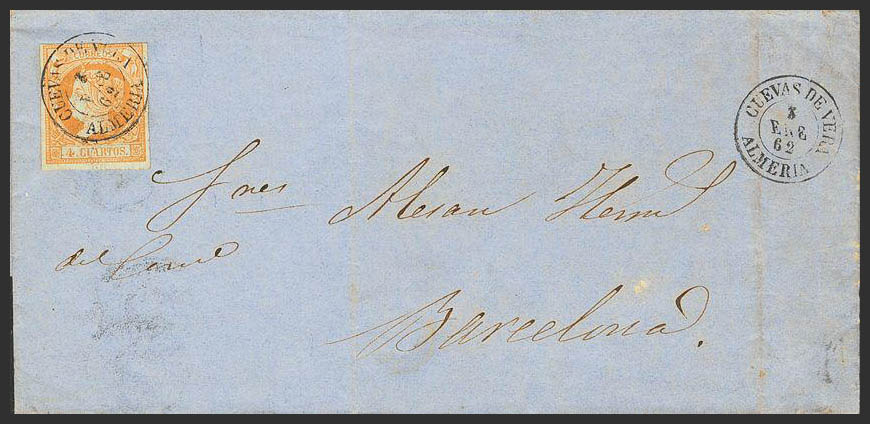 CORREOS
CUEVAS DE VERA
62
ALMERIA
4 CUARTOS.
CUEVAS DE VERA
3
ENE
62
ALMERIA
Sres Alesan Herm
del
Barcelona.